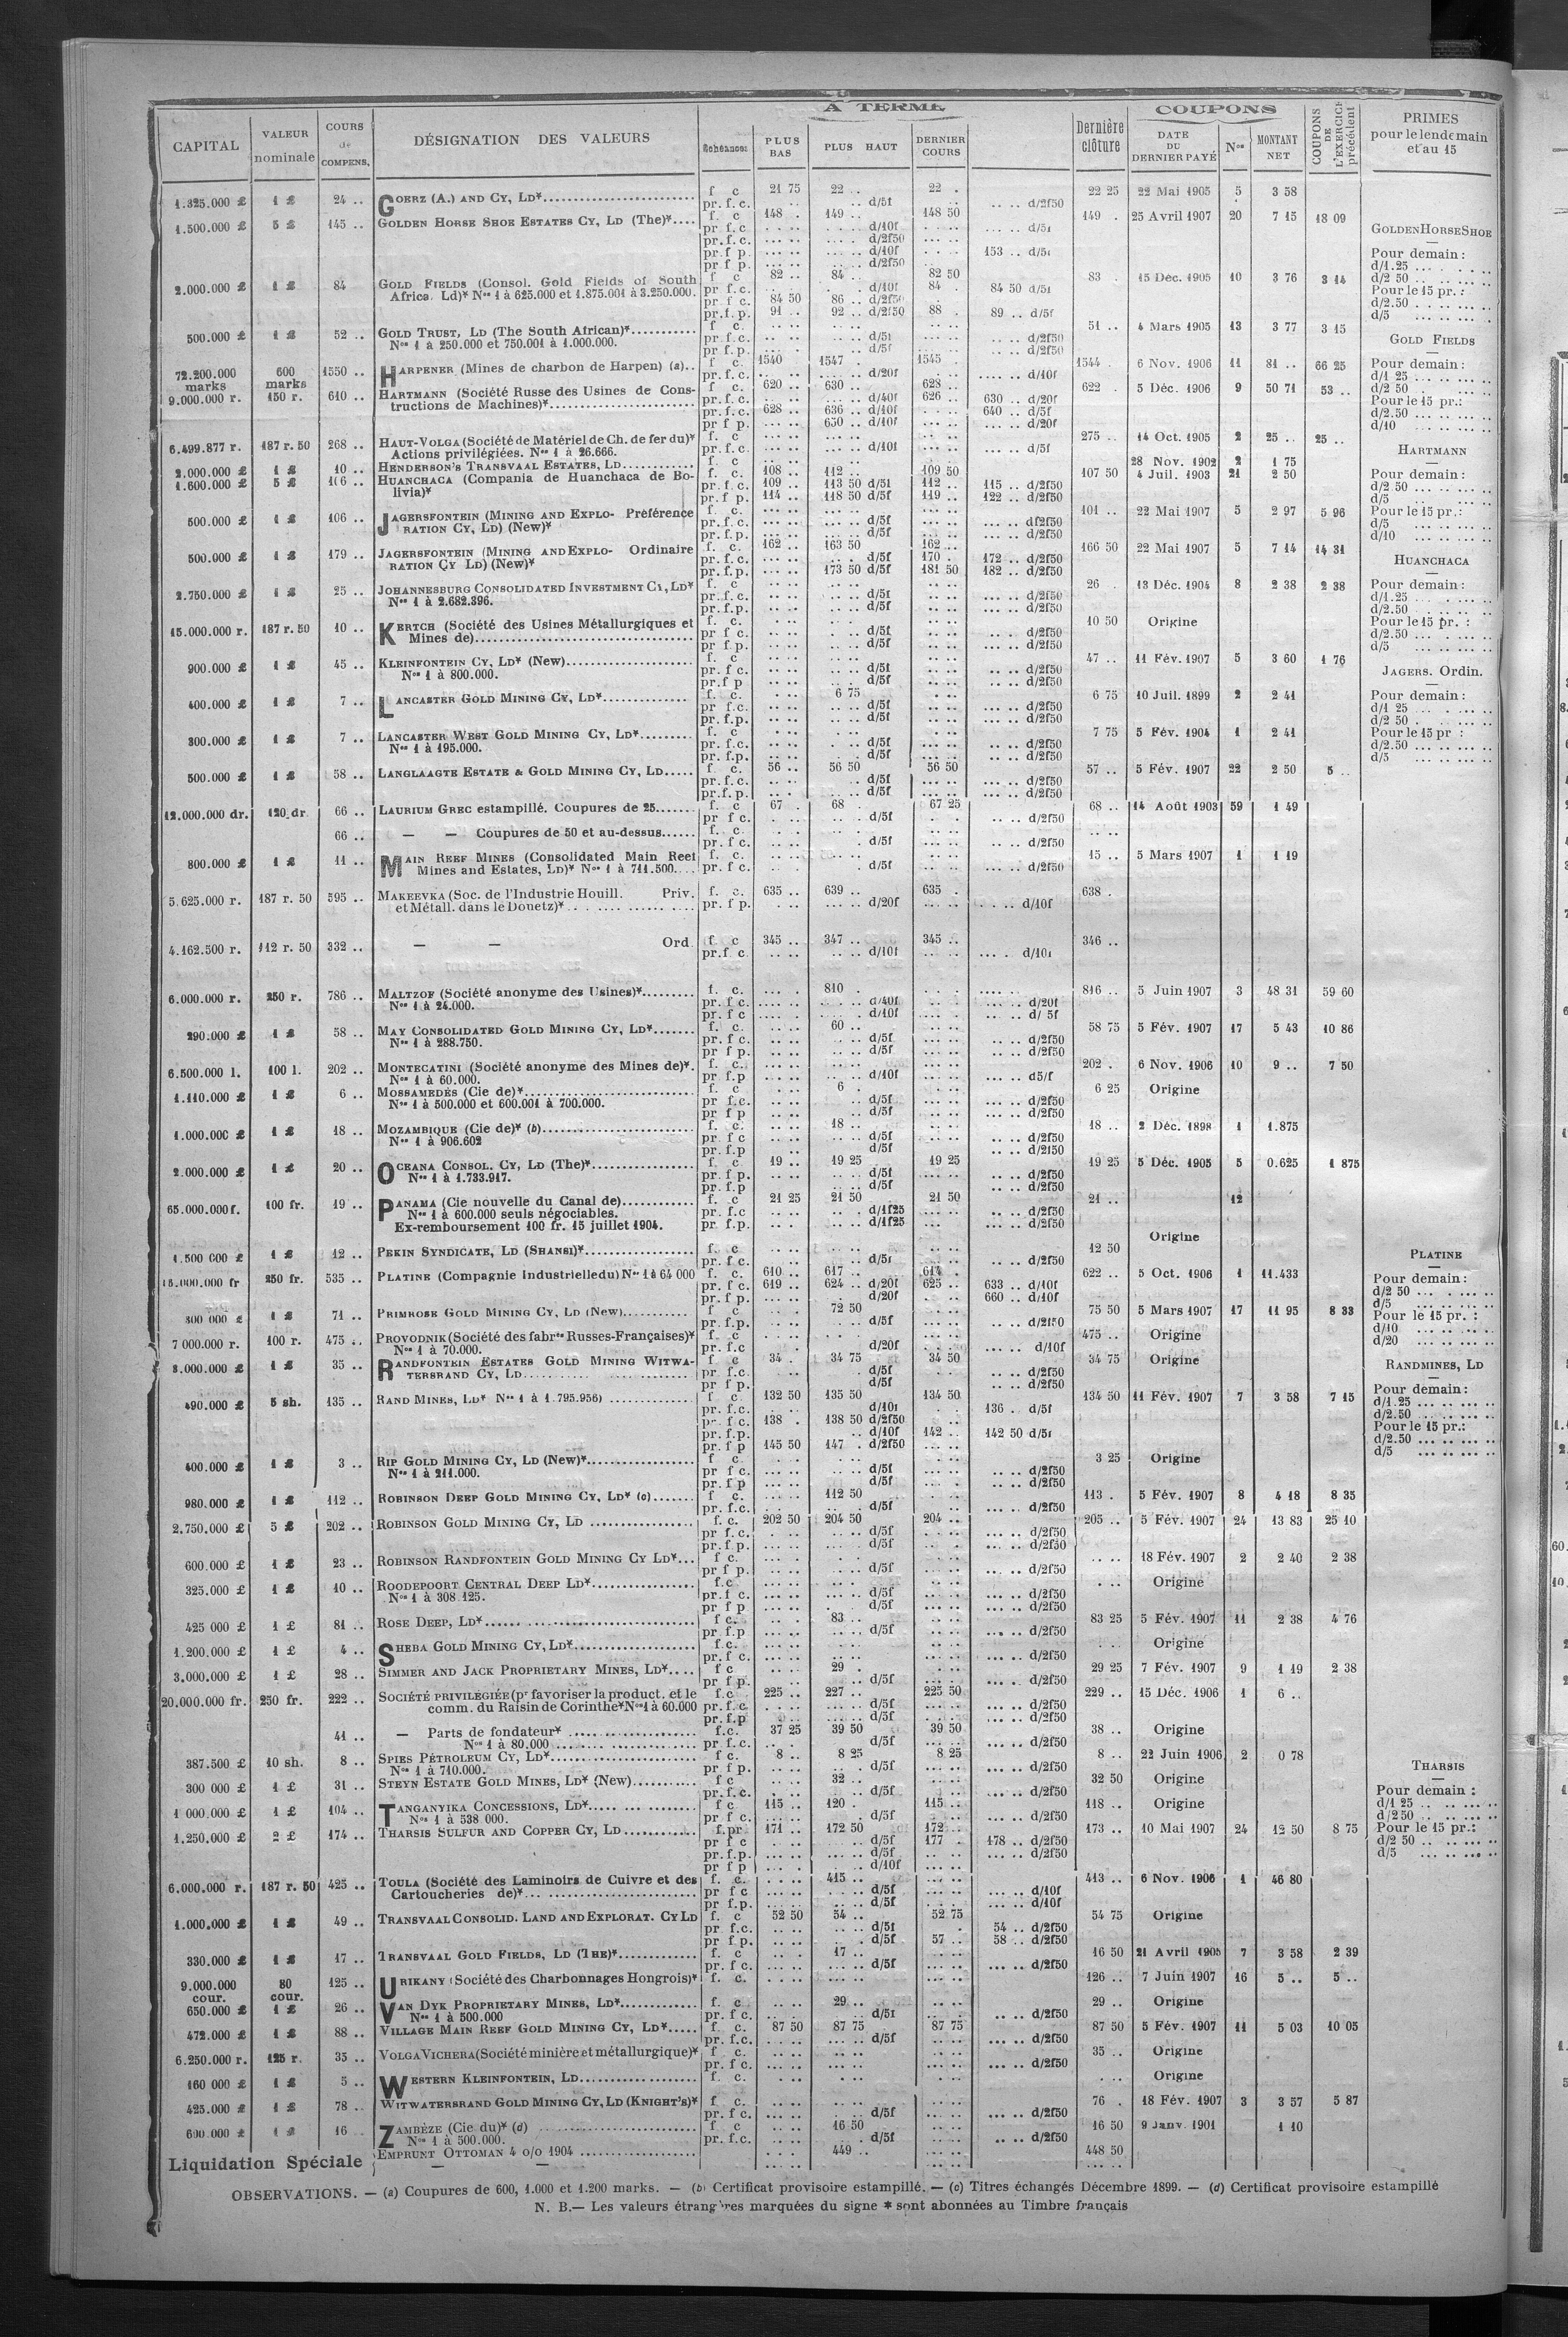 À TERME
COUPONS
CAPITAL
VALEUR nominale
COURS de COMPENS.
DÉSIGNATION DES VALEURS
Échéances
PLUS BAS
PLUS HAUT
DERNIER COURS
Dernière clôture
DATE DU DERNIER PAYÉ
Nos
MONTANT NET
COUPONS DE L'EXERCICE précédent
PRIMES pour le lendemain et au 15
1.325.000 £ 1 £ 24 .. GOERZ (A.) AND CY, LD* f c 21 75 22 .. 22 . 22 25 22 Mai 1905 5 3 58
pr. f. c. .. d/5f .. .. d/2f50
1.500.000 £ 5 £ 145 .. GOLDEN HORSE SHOE ESTATES CY, LD (The)* f. c 148 . 149 .. 148 50 149 . 25 Avril 1907 20 7 15 18 09
pr. f. c d/10f d/5f
pr. f. c. d/2f50
pr. f p. d/10f 153 .. d/5f
pr. f p. d/2f50
2.000.000 £ 1 £ 84 GOLD FIELDS (Consol. Gold Fields of South f c 82 .. 84 .. 82 50 83 . 15 Déc. 1905 10 3 76 3 14
Africa. Ld)* Nos 1 à 625.000 et 1.875.001 à 3.250.000. pr. f.c. d/10f 84 . 84 50 d/5f
pr. f c. 84 50 86 .. d/2f50
pr. f. p. 91 .. 92 .. d/2f50 88 . 89 .. d/5f
500.000 £ 1 £ 52 .. GOLD TRUST, LD (The South African)* f c. 51 .. 4 Mars 1905 13 3 77 3 15
Nos 1 à 250.000 et 750.001 à 1.000.000. pr. f.c. d/5f d/2f50
pr. f.p. d/5f d/2f50
72.200.000 marks 600 marks 1550 .. HARPENER (Mines de charbon de Harpen) (a).. f c. 1540 1547 . 1545 1544 . 6 Nov. 1906 11 81 .. 66 25
pr. f.c. d/20f d/10f
9.000.000 r. 150 r. 610 .. HARTMANN (Société Russe des Usines de Cons- f c. 620 .. 630 .. 628 .. 622 . 5 Déc. 1906 9 50 71 53 ..
tructions de Machines)* pr. f.c. d/40f 626 .. 630 .. d/20f
pr. f. c. 628 636 .. d/10f 640 .. d/5f
pr f p. 650 .. d/10f d/20f
6.499.877 r. 187 r. 50 268 .. HAUT-VOLGA (Société de Matériel de Ch. de fer du)* f. c 275 .. 14 Oct. 1905 2 25 .. 25 ..
Actions privilégiées. Nos 1 à 26.666. pr. f.c. d/10f d/5f
2.000.000 £ 1 £ 10 .. HENDERSON'S TRANSVAAL ESTATES, LD f c 28 Nov. 1902 2 1 75
1.600.000 £ 5 £ 106 .. HUANCHACA (Compania de Huanchaca de Bo- f. c. 108 .. 112 .. 109 50 107 50 4 Juil. 1903 21 2 50
livia)* pr. f. c. 109 .. 113 50 d/5f 112 .. 115 .. d/2f50
pr. f p. 114 .. 118 50 d/5f 119 .. 122 .. d/2f50
500.000 £ 1 £ 106 .. JAGERSFONTEIN (MINING AND EXPLO- Préférence f. c. 101 .. 22 Mai 1907 5 2 97 5 96
RATION CY, LD) (New)* pr. f.c. d/5f df2f50
pr. f.p. d/5f d/2f50
500.000 £ 1 £ 179 .. JAGERSFONTEIN (MINING AND EXPLO- Ordinaire f. c. 162 .. 163 50 162 .. 166 50 22 Mai 1907 5 7 14 14 31
RATION CY LD) (New)* pr. f.c. d/5f 170 . 172 .. d/2f50
pr. f.p. 173 50 d/5f 181 50 182 .. d/2f50
2.750.000 £ 1 £ 25 .. JOHANNESBURG CONSOLIDATED INVESTMENT CY, LD* f c 26 . 13 Déc. 1904 8 2 38 2 38
Nos 1 à 2.682.396. pr. f.c. d/5f d/2f50
pr. f.p. d/5f d/2f50
15.000.000 r. 187 r. 50 10 .. KERTCH (Société des Usines Métallurgiques et f. c. 10 50 Origine
Mines de) pr f c. d/5f d/2f50
pr f.p. d/5f d/2f50
900.000 £ 1 £ 45 .. KLEINFONTEIN CY, LD* (New) f. c 47 .. 11 Fév. 1907 5 3 60 1 76
Nos 1 à 800.000. pr. f c. d/5f d/2f50
pr.f p d/5f d/2f50
400.000 £ 1 £ 7 .. LANCASTER GOLD MINING CY, LD* f. c. 6 75 6 75 10 Juil. 1899 2 2 41
pr f.c. d/5f d/2f50
pr. f.p. d/5f d/2f50
300.000 £ 1 £ 7 .. LANCASTER WEST GOLD MINING CY, LD* f c 7 75 5 Fév. 1904 1 2 41
Nos 1 à 195.000. pr. f.c. d/5f d/2f50
pr. f.p. d/5f d/2f50
500.000 £ 1 £ 58 .. LANGLAAGTE ESTATE & GOLD MINING CY, LD f c. 56 .. 56 50 56 50 57 .. 5 Fév. 1907 22 2 50 5 ..
pr. f.c. d/5f d/2f50
pr.f.p. d/5f d/2f50
12.000.000 dr. 120 dr 66 .. LAURIUM GREC estampillé. Coupures de 25 f. c 67 . 68 . 67 25 68 .. 14 Août 1903 59 1 49
pr f c. d/5f d/2f50
66 .. — — Coupures de 50 et au-dessus f. c.
pr f c. d/5f d/2f50
800.000 £ 1 £ 11 .. MAIN REEF MINES (Consolidated Main Reef f. c. 15 .. 5 Mars 1907 1 1 19
Mines and Estates, LD)* Nos 1 à 711.500 pr. f c. d/5f d/2f50
5.625.000 r. 187 r. 50 595 .. MAKEEVKA (Soc. de l'Industrie Houill. Priv. f. c. 635 .. 639 .. 635 . 638 .
et Métall. dans le Donetz)* pr. f p. d/20f d/10f
4.162.500 r. 112 r. 50 332 .. — — Ord f. c 345 .. 347 .. 345 .. 346 ..
pr.f. c. d/10f d/10f
6.000.000 r. 250 r. 786 .. MALTZOF (Société anonyme des Usines)* f. c. 810 . 816 .. 5 Juin 1907 3 48 31 59 60
Nos 1 à 24.000. pr. f c. d/40f d/20f
pr. f c d/10f d/ 5f
290.000 £ 1 £ 58 .. MAY CONSOLIDATED GOLD MINING CY, LD* f. c. 60 .. 58 75 5 Fév. 1907 17 5 43 10 86
Nos 1 à 288.750. pr. f c. d/5f d/2f50
pr f p. d/5f d/2f50
6.500.000 l. 100 l. 202 .. MONTECATINI (Société anonyme des Mines de)*. f. c. 202 . 6 Nov. 1906 10 9 .. 7 50
Nos 1 à 60.000. pr. f.p d/10f d5/f
1.110.000 £ 1 £ 6 .. MOSSAMEDÈS (Cie de)* f. c 6 . 6 25 Origine
Nos 1 à 500.000 et 600.001 à 700.000. pr f.c. d/5f d/2f50
pr f p d/5f d/2f50
1.000.000 £ 1 £ 18 .. MOZAMBIQUE (Cie de)* (b) f. c. 18 .. 18 .. 2 Déc. 1898 1 1.875
Nos 1 à 906.602 pr f c d/5f d/2f50
pr. f.p d/5f d/2f50
2.000.000 £ 1 £ 20 .. OCEANA CONSOL. CY, LD (The)* f. c 19 .. 19 25 19 25 19 25 5 Déc. 1905 5 0.625 1 875
Nos 1 à 1.733.917. pr. f p. d/5f d/2f50
pr. f.p d/5f d/2f50
65.000.000f. 100 fr. 19 .. PANAMA (Cie nouvelle du Canal de) f. c 21 25 21 50 21 50 21 .. 12
Nos 1 à 600.000 seuls négociables. pr. f.c d/1f25 d/2f50
Ex-remboursement 100 fr. 15 juillet 1904. pr. f.p. d/1f25 d/2f50
1.500 000 £ 1 £ 12 .. PEKIN SYNDICATE, LD (SHANSI)* f. c 12 50 Origine
pr. f c. d/5f d/2f50
15.000.000 fr 250 fr. 535 .. PLATINE (Compagnie Industrielle du) Nos 1 à 64 000 f. c. 610 .. 617 .. 614 . 622 .. 5 Oct. 1906 1 11.433
pr. f c. 619 .. 624 .. d/20f 625 .. 633 .. d/10f
pr. f p. d/20f 660 .. d/10f
300 000 £ 1 £ 71 .. PRIMROSE GOLD MINING CY, LD (New) f c 72 50 75 50 5 Mars 1907 17 11 95 8 33
pr. f.p. d/5f d/2f50
7 000.000 r. 100 r. 475 .. PROVODNIK (Société des fabres Russes-Françaises)* f. c 475 .. Origine
Nos 1 à 70.000. pr. f.c d/20f d/10f
3.000.000 £ 1 £ 35 .. RANDFONTEIN ESTATES GOLD MINING WITWA- f c 34 . 34 75 34 50 34 75 Origine
TERSRAND CY, LD pr. f.c. d/5f d/2f50
pr f p. d/5f d/2f50
490.000 £ 5 sh. 135 .. RAND MINES, LD* Nos 1 à 1.795.956) f c. 132 50 135 50 134 50 134 50 11 Fév. 1907 7 3 58 7 15
pr. f.c. d/10f 136 . d/5f
pr. f c. 138 . 138 50 d/2f50
pr. f.p. d/10f 142 .. 142 50 d/5f
pr. f p 145 50 147 . d/2f50
400.000 £ 1 £ 3 .. RIP GOLD MINING CY, LD (New)* f c. 3 25 Origine
Nos 1 à 211.000. pr f c. d/5f d/2f50
pr. f p d/5f d/2f50
980.000 £ 1 £ 112 .. ROBINSON DEEP GOLD MINING CY, LD* (c) f c. 112 50 113 . 5 Fév. 1907 8 4 18 8 35
pr. f.c. d/5f d/2f50
2.750.000 £ 5 £ 202 .. ROBINSON GOLD MINING CY, LD f. c. 202 50 204 50 204 .. 205 .. 5 Fév. 1907 24 13 83 25 10
pr f c. d/5f d/2f50
pr.f.p. d/5f d/2f50
600.000 £ 1 £ 23 .. ROBINSON RANDFONTEIN GOLD MINING CY LD* f c. 18 Fév. 1907 2 2 40 2 38
pr f p. d/5f d/2f50
325.000 £ 1 £ 10 .. ROODEPOORT CENTRAL DEEP LD* f.c Origine
Nos 1 à 308 125. pr.f c. d/5f d/2f50
pr f p d/5f d/2f50
425 000 £ 1 £ 81 .. ROSE DEEP, LD* f c. 83 .. 83 25 5 Fév. 1907 11 2 38 4 76
pr. f.p d/5f d/2f50
1.200.000 £ 1 £ 4 .. SHEBA GOLD MINING CY, LD* f.c. Origine
pr. f c. d/2f50
3,000.000 £ 1 £ 28 .. SIMMER AND JACK PROPRIETARY MINES, LD* f c 29 . 29 25 7 Fév. 1907 9 1 19 2 38
pr f p. d/5f d/2f50
20.000.000 fr. 250 fr. 222 .. SOCIÉTÉ PRIVILÉGIÉE (pr favoriser la product. et le f.c 225 .. 227 .. 225 50 229 .. 15 Déc. 1906 1 6 ..
comm. du Raisin de Corinthe* Nos 1 à 60.000 pr. f.c. d/5f d/2f50
pr. f.p d/5f d/2f50
41 .. — Parts de fondateur* f.c. 37 25 39 50 39 50 38 .. Origine
Nos 1 à 80.000 pr f.c. d/5f d/2f50
387.500 £ 10 sh. 8 .. SPIES PÉTROLEUM CY, LD* f c. 8 .. 8 25 8 25 8 .. 22 Juin 1906 2 0 78
Nos 1 à 710.000. pr f p. d/5f d/2f50
300 000 £ 1 £ 31 .. STEYN ESTATE GOLD MINES, LD* (New) f c 32 .. 32 50 Origine
pr.f.c. d/5f d/2f50
1 000.000 £ 1 £ 104 .. TANGANYIKA CONCESSIONS, LD* f c 115 .. 120 . 115 .. 118 .. Origine
Nos 1 à 538 000. pr f c. d/5f d/2f50
1.250.000 £ 2 £ 174 .. THARSIS SULFUR AND COPPER CY, LD f.pr 171 .. 172 50 172 .. 173 .. 10 Mai 1907 24 12 50 8 75
pr f c d/5f 177 . 178 .. d/2f50
pr. f.p. d/5f d/2f50
pr f p d/10f
6.000.000 r. 187 r. 50 425 .. TOULA (Société des Laminoirs de Cuivre et des f. c. 415 .. 413 .. 6 Nov. 1906 1 46 80
Cartoucheries de)* pr f c d/5f d/10f
pr f.p. d/5f d/10f
1.000.000 £ 1 £ 49 .. TRANSVAAL CONSOLID. LAND AND EXPLORAT. CY LD f. c 52 50 54 .. 52 75 54 75 Origine
pr f.c. d/5f 54 .. d/2f50
pr f p. d/5f 57 .. 58 .. d/2f50
330.000 £ 1 £ 17 .. TRANSVAAL GOLD FIELDS, LD (THE)* f. c 17 .. 16 50 21 Avril 1905 7 3 58 2 39
pr f c. d/5f d/2f50
9.000.000 cour. 80 cour. 125 .. URIKANY (Société des Charbonnages Hongrois)* f. c. 126 .. 7 Juin 1907 16 5 .. 5 ..
650.000 £ 1 £ 26 .. VAN DYK PROPRIETARY MINES, LD* f. c 29 .. 29 .. Origine
Nos 1 à 500.000 pr. f c. d/5f d/2f50
472.000 £ 1 £ 88 .. VILLAGE MAIN REEF GOLD MINING CY, LD* f. c. 87 50 87 75 87 75 87 50 5 Fév. 1907 11 5 03 10 05
pr. f.c. d/5f d/2f50
6.250.000 r. 125 r. 35 .. VOLGA VICHERA (Société minière et métallurgique)* f c. 35 .. Origine
pr. f c. d/2f50
160 000 £ 1 £ 5 .. WESTERN KLEINFONTEIN, LD f. c. Origine
425.000 £ 1 £ 78 .. WITWATERSRAND GOLD MINING CY, LD (KNIGHT'S)* f c. 76 . 18 Fév. 1907 3 3 57 5 87
pr. f c. d/5f d/2f50
600.000 £ 1 £ 16 . ZAMBÈZE (Cie du)* (d) f c 16 50 16 50 9 Janv. 1901 1 10
Nos 1 à 500.000. pr. f.c. d/5f d/2f50
Liquidation Spéciale EMPRUNT OTTOMAN 4 o/o 1904 449 .. 448 50
— —
GOLDEN HORSE SHOE
Pour demain :
d/1.25
d/2 50
Pour le 15 pr. :
d/2.50
d/5
GOLD FIELDS
Pour demain :
d/1 25
d/2 50
Pour le 15 pr.:
d/2.50
d/10
HARTMANN
Pour demain :
d/2 50
d/5
Pour le 15 pr.:
d/5
d/10
HUANCHACA
Pour demain :
d/1.25
d/2.50
Pour le 15 pr. :
d/2.50
d/5
JAGERS. Ordin.
Pour demain :
d/1 25
d/2 50
Pour le 15 pr :
d/2.50
d/5
PLATINE
Pour demain :
d/2 50
d/5
Pour le 15 pr. :
d/10
d/20
RANDMINES, LD
Pour demain :
d/1.25
d/2.50
Pour le 15 pr.:
d/2.50
d/5
THARSIS
Pour demain :
d/1 25
d/2 50
Pour le 15 pr.:
d/2 50
d/5
OBSERVATIONS. — (a) Coupures de 600, 1.000 et 1.200 marks. — (b) Certificat provisoire estampillé. — (c) Titres échangés Décembre 1899. — (d) Certificat provisoire estampillé
N. B.— Les valeurs étrangères marquées du signe * sont abonnées au Timbre français